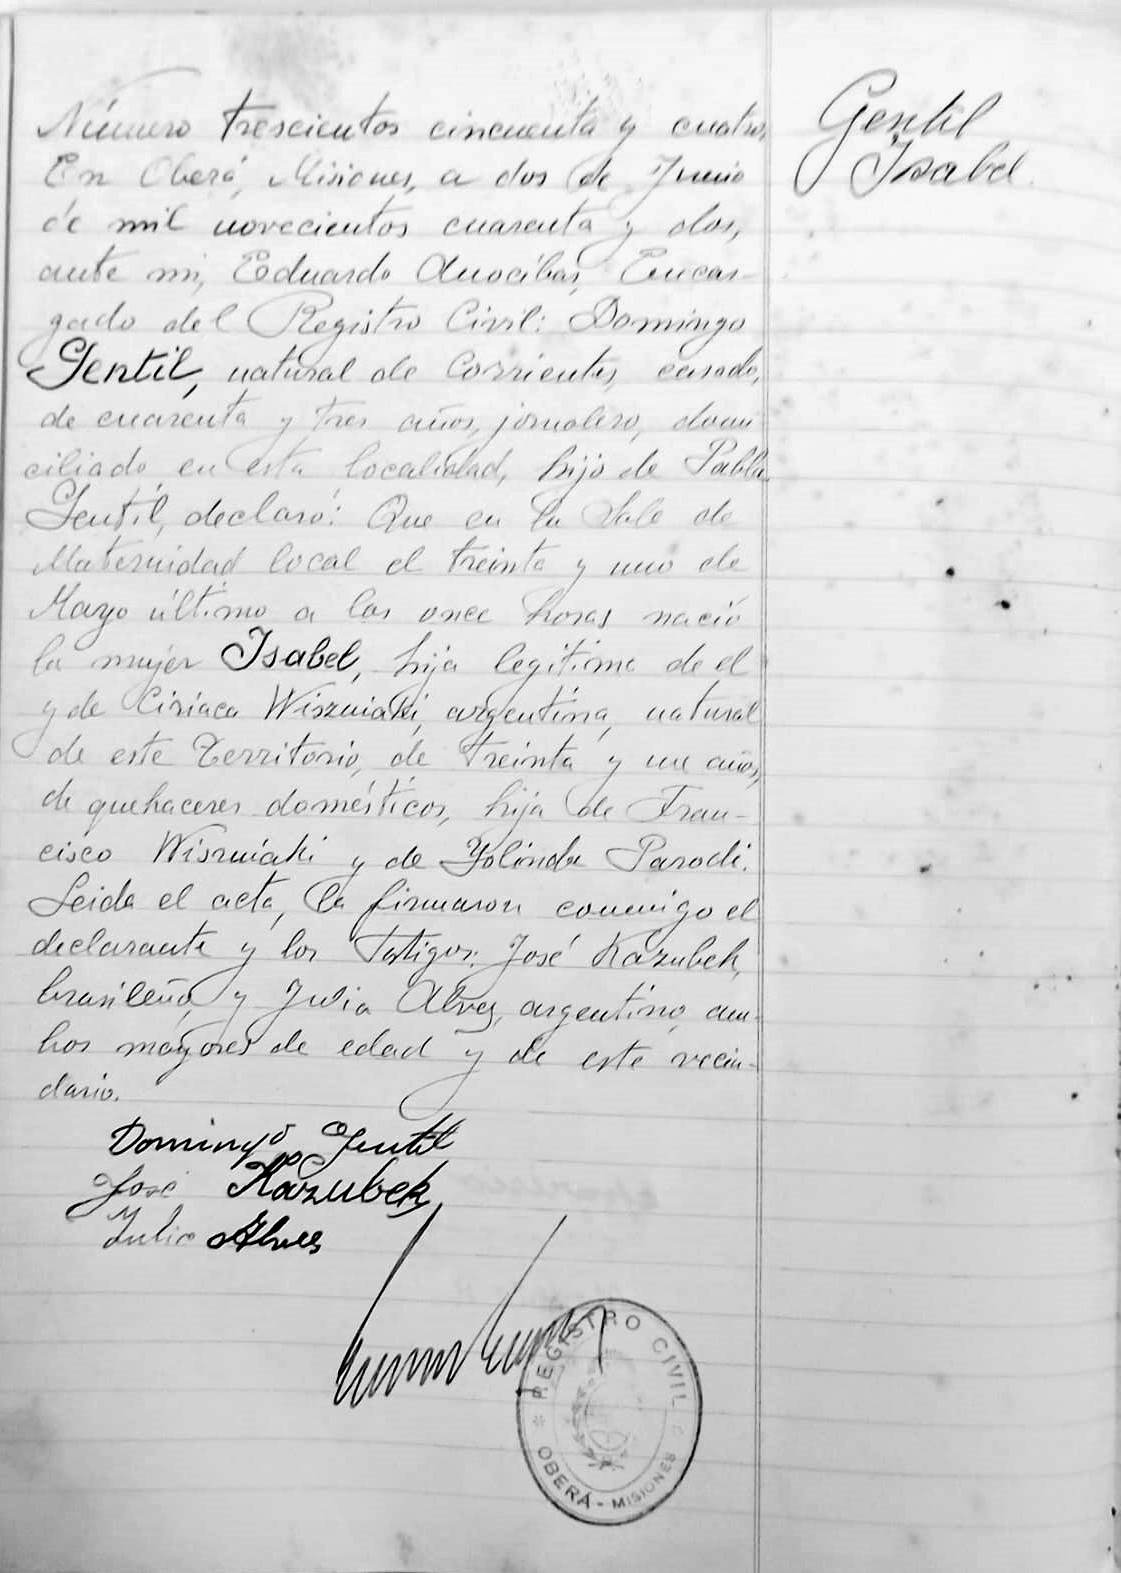 Número trescientos cincuenta y cuatro.
En Oberá, Misiones, a dos de Junio
de mil novecientos cuarenta y dos,
ante mi, Eduardo Anocíbar, Encar-
gado del Registro Civil: Domingo
Gentil, natural de Corrientes, casado,
de cuarenta y tres años, jornalero, domi
ciliado en esta localidad, hijo de Pabla
Gentil, declaró: Que en la Sala de
Maternidad local el treinta y uno de
Mayo último a las once horas nació
la mujer Isabel, hija legitima de el
y de Ciriaca Wiszniaki, argentina, natural
de este Territorio, de treinta y un años,
de quehaceres domésticos, hija de Fran-
cisco Wiszniaki y de Yolinda Parodi.
Leida el acta, la firmaron conmigo el
declarante y los testigos: José Kazubek,
brasileño, y Julio Alves, argentino, am-
bos mayores de edad y de este vecin-
dario.
Domingo Gentil
José Kazubek
Julio Alves
Gentil
Isabel.
REGISTRO CIVIL
OBERÁ - MISIONES